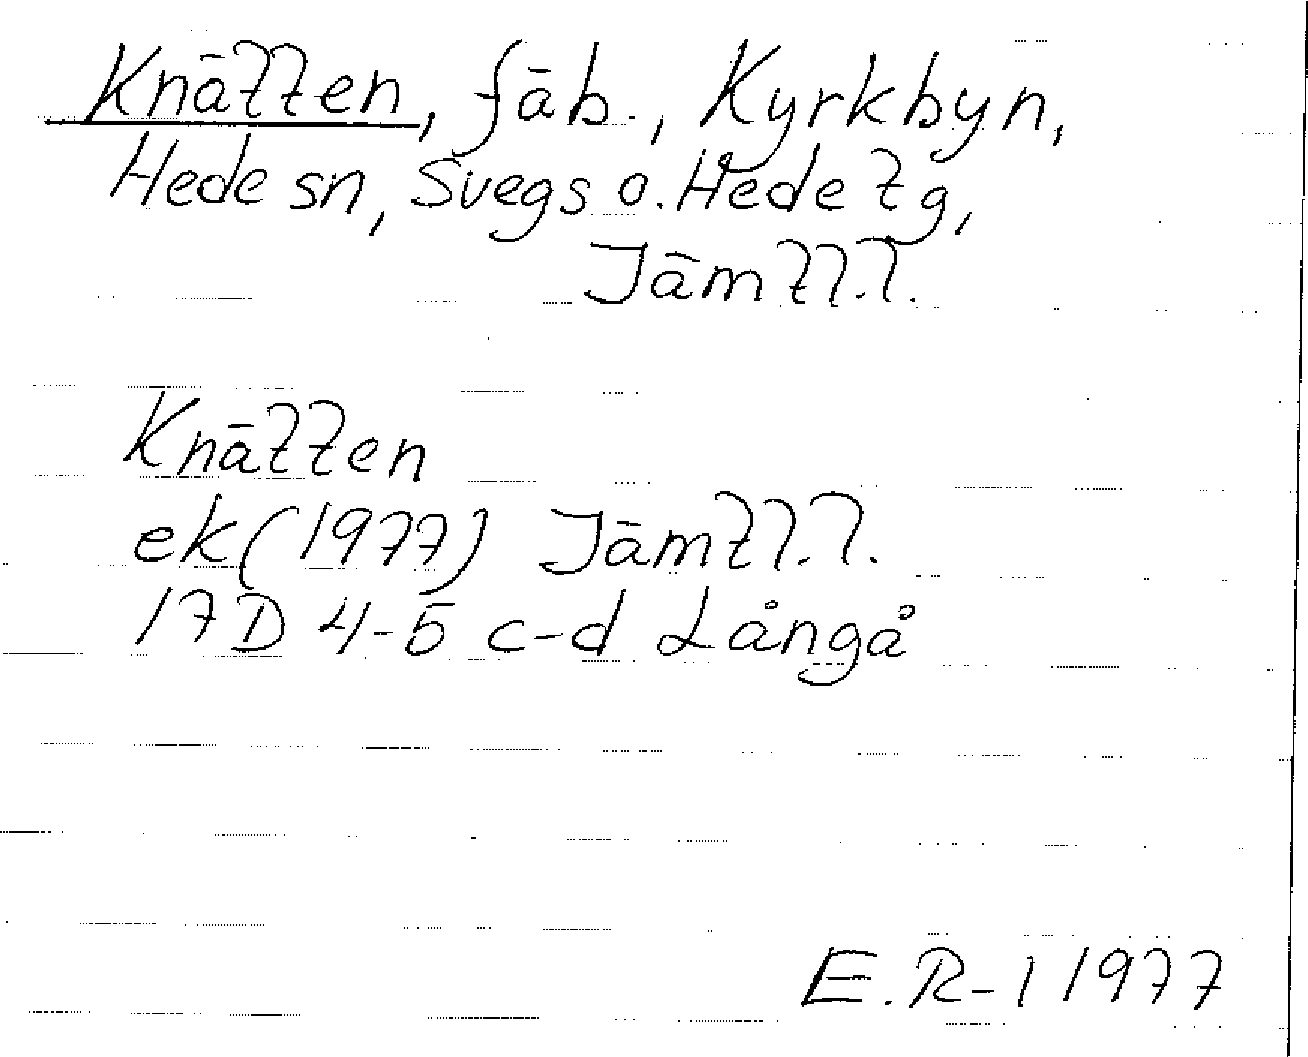 Knätten, fäb., Kyrkbyn,
Hede sn, Svegs o. Hede tg,
Jämtl.l.
Knätten
ek (1977) Jämtl.l.
17D 4-5 c-d Långå
E.R-l 1977